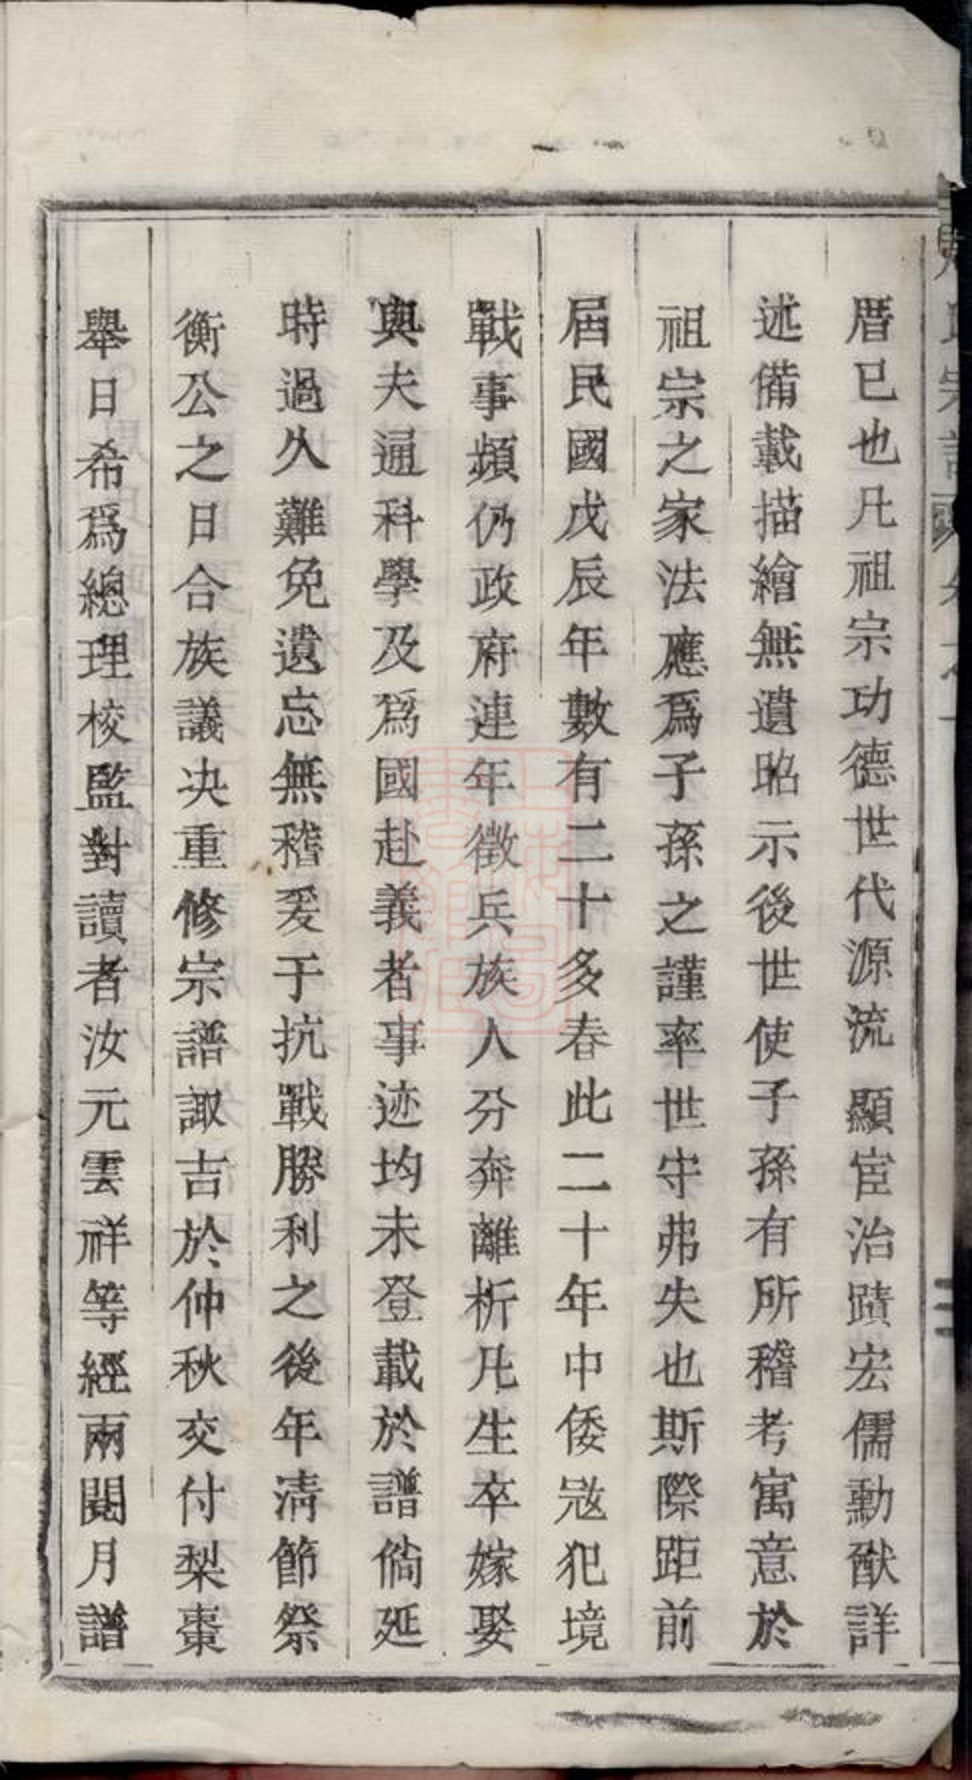 厝已也凡祖宗功德世代源流顯宦治蹟宏儒勳猷詳
述備載描繪無遺昭示後世使子孫有所稽考寓意於
祖宗之家法應爲子孫之謹率世守弗失也斯際距前
届民國戊辰年數有二十多春此二十年中倭寇犯境
戰事頻仍政府連年徵兵族人分奔離析凡生卒嫁娶
與夫通科學及爲國赴義者事迹均未登載於譜倘延
時過久難免遺忘無稽爰于抗戰勝利之後年清節祭
衡公之日合族議决重修宗譜諏吉於仲秋交付梨棗
舉日希爲總理校監對讀者汝元雲祥等經兩閱月譜